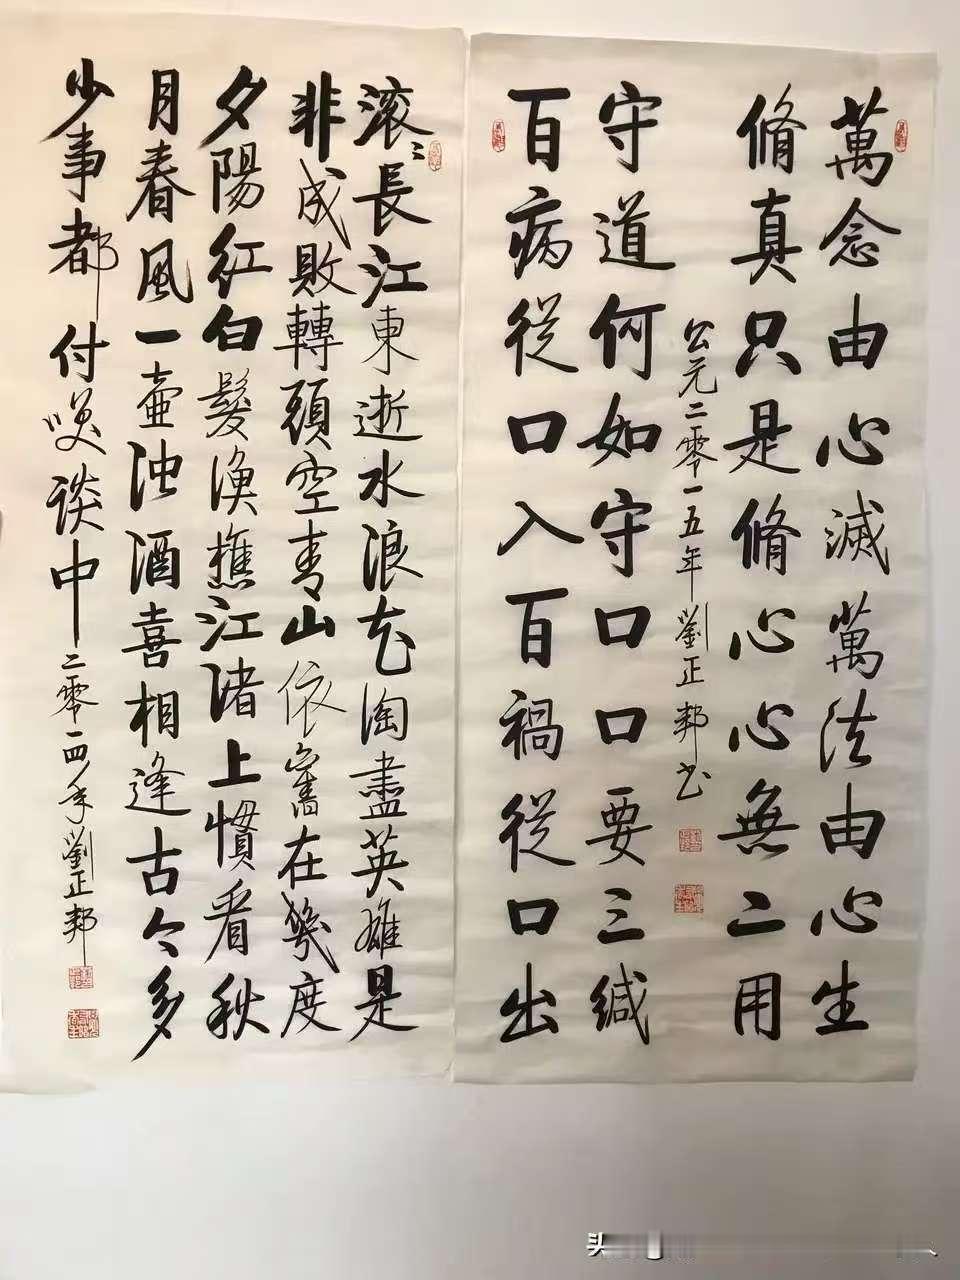 萬念由心滅萬法由心生
脩真只是脩心心無二用
公元二零一五年劉正邦书
守道何如守口口要三緘
百病從口入百禍從口出
滚〻長江東逝水浪花淘盡英雄是
非成敗轉頭空青山依舊在幾度
夕陽紅白髮漁樵江渚上慣看秋
月春風一壺浊酒喜相逢古今多
少事都付笑谈中
二零一四年劉正邦
头